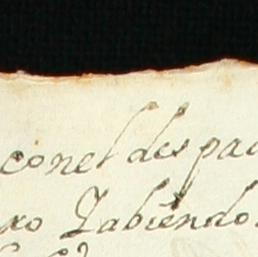 conel despac
xo Zabiendo